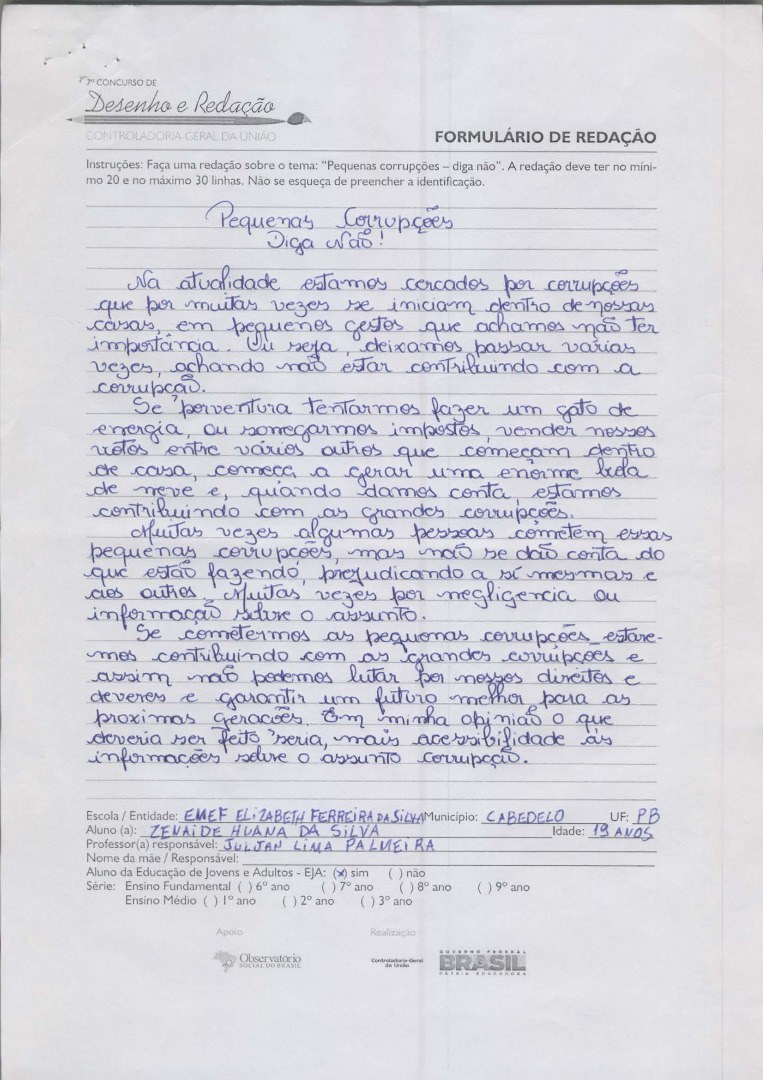 7º CONCURSO DE
Desenho e Redação
CONTROLADORIA-GERAL DA UNIÃO
FORMULÁRIO DE REDAÇÃO
Instruções: Faça uma redação sobre o tema: "Pequenas corrupções – diga não". A redação deve ter no míni-
mo 20 e no máximo 30 linhas. Não se esqueça de preencher a identificação.
Pequenas Corrupções
Diga Não!
Na atualidade estamos cercados por corrupções
que por muitas vezes se iniciam dentro de nossas
casas, em pequenos gestos que achamos não ter
importância. Ou seja, deixamos passar várias
vezes, achando não estar contribuindo com a
corrupção.
Se porventura tentarmos fazer um gato de
energia, ou sonegarmos impostos, vender nossos
votos entre vários outros que começam dentro
de casa, começa a gerar uma enorme bola
de neve e, quando damos conta, estamos
contribuindo com as grandes corrupções.
Muitas vezes algumas pessoas cometem essas
pequenas corrupções, mas não se dão conta do
que estão fazendo, prejudicando a sí mesmas e
aos outros. Muitas vezes por negligencia ou
informação sobre o assunto.
Se cometermos as pequenas corrupções estare-
mos contribuindo com as grandes corrupções e
assim não podemos lutar por nossos direitos e
deveres e garantir um futuro melhor para as
proximas gerações. Em minha opinião o que
deveria ser feito seria, mais acessibilidade ás
informações sobre o assunto corrupção.
Escola / Entidade: EMEF ELIZABETH FERREIRA DA SILVA Município: CABEDELO UF: PB
Aluno (a): ZENAIDE HUANA DA SILVA Idade: 19 ANOS
Professor(a) responsável: JULJAN LIMA PALMEIRA
Nome da mãe / Responsável:
Aluno da Educação de Jovens e Adultos - EJA: (x) sim ( ) não
Série: Ensino Fundamental ( ) 6º ano ( ) 7º ano ( ) 8º ano ( ) 9º ano
Ensino Médio ( ) 1º ano ( ) 2º ano ( ) 3º ano
Apoio Realização
Observatório
SOCIAL DO BRASIL
Controladoria-Geral
da União
GOVERNO FEDERAL
BRASIL
PÁTRIA EDUCADORA